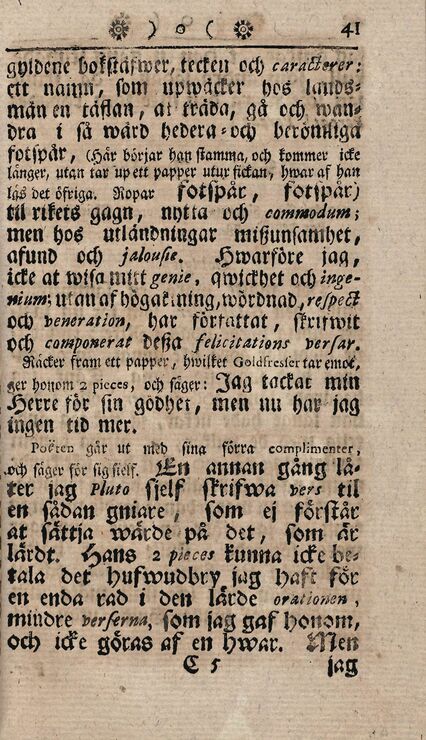 ) o ( 41
gyldene bokstäfwer, tecken och caracterer:
ett namn, som upwäcker hos lands-
män en täflan, at träda, gå och wan-
dra i så wärd hedera- och berömliga
fotspår, (Här börjar han stamma, och kommer icke
länger, utan tar up ett papper utur fickan, hwar af han
läs det öfriga. Ropar fotspår, fotspår)
til rikets gagn, nytta och commodum;
men hos utländningar mißunsamhet,
afund och jalousie. Hwarföre jag,
icke at wisa mitt genie, qwickhet och inge-
nium; utan af högaktning, wördnad, respect
och veneration, har författat, skrifwit
och componerat deßa felicitations versar.
Räcker fram ett papper, hwilket Goldfresser tar emot,
ger honom 2 pieces, och säger: Jag tackar min
Herre för sin godhet, men nu har jag
ingen tid mer.
Poëten går ut med sina förra complimenter,
och säger för sig sielf. En annan gång lå-
ter jag Pluto sjelf skrifwa vers til
en sådan gniare, som ej förstår
at sättja wärde på det, som är
lärdt. Hans 2 pieces kunna icke be-
tala det hufwudbry jag haft för
en enda rad i den lärde orationen,
mindre verserna, som jag gaf honom,
och icke göras af en hwar. Men
C 5 jag